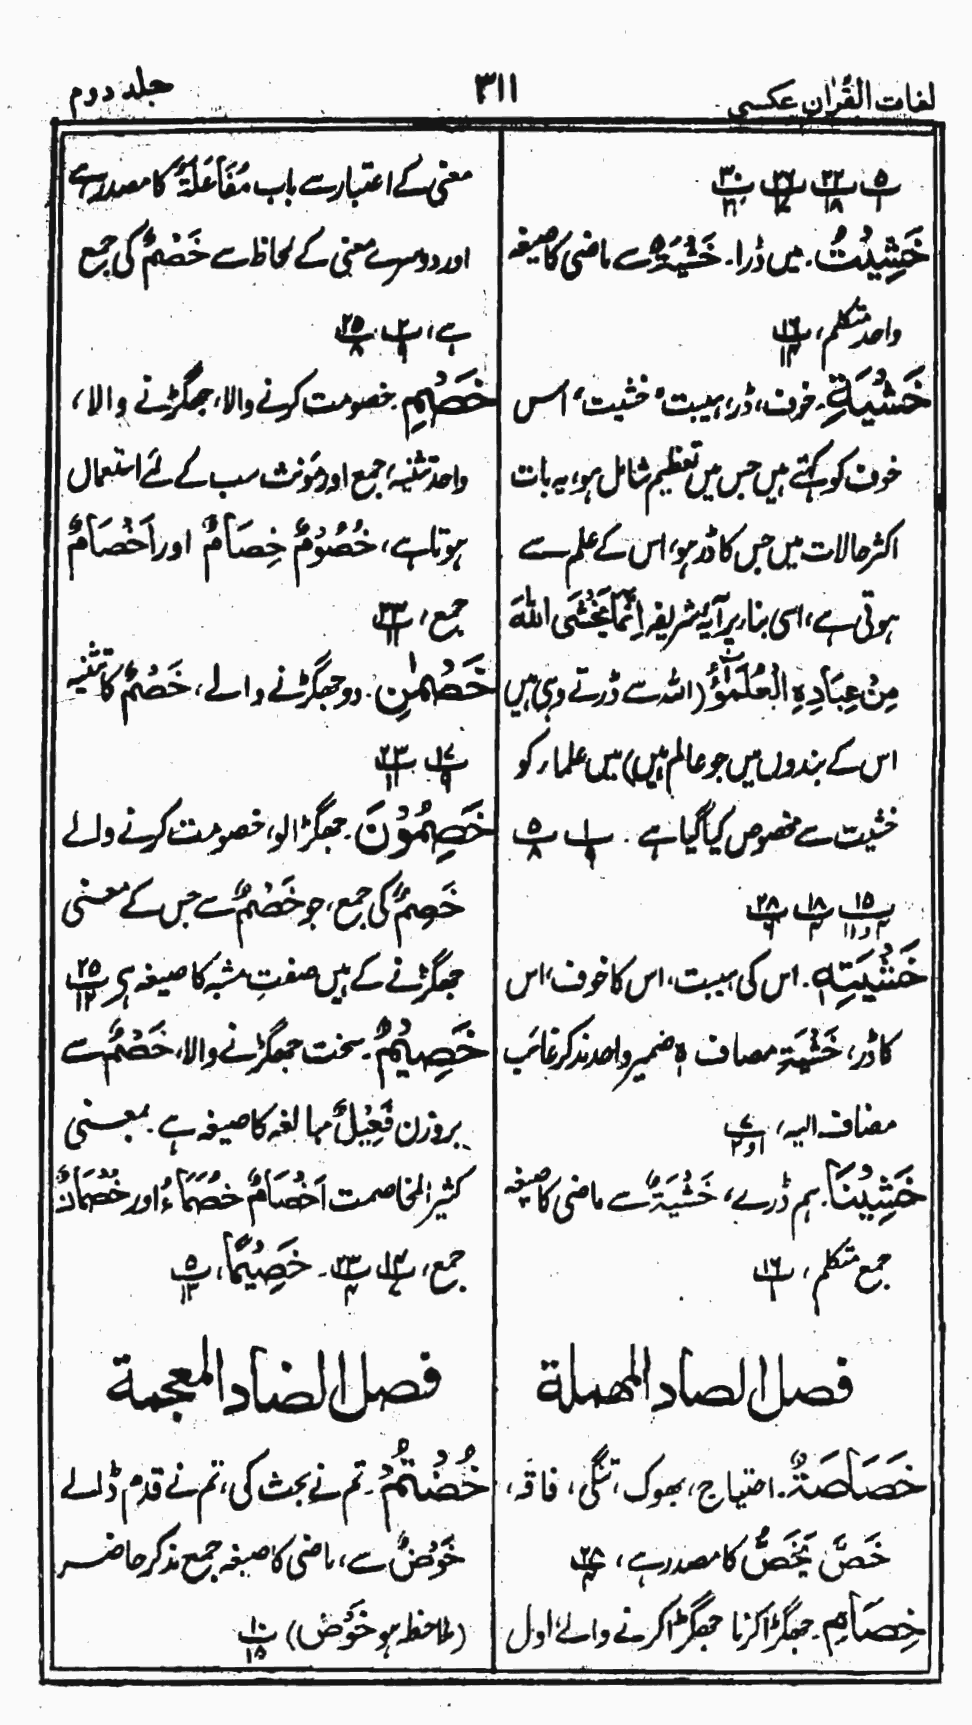 لغات القرآن عکسی
۳۱۱
جلد دوم
۵/۱ ۲۲/۱۸ ۲۲ ۳۰/۲۱
خَشِیْتُ۔ میں ڈرا۔ خَشْیَۃٌ سے ماضی کا صیغہ
واحد متکلم، ۱۶/۱۴
خَشْیَۃِ۔ خوف، ڈر، ہیبت، خشیت، اس
خوف کو کہتے ہیں جس میں تعظیم شامل ہو، یہ بات
اکثر حالات میں جس کا ڈر ہو، اس کے علم سے
ہوتی ہے، اسی بنا پر آیہ شریفہ اِنَّمَا یَخْشَی اللّٰہَ
مِنْ عِبَادِہِ الْعُلَمٰٓؤُا (اللہ سے ڈرتے وہی ہیں
اس کے بندوں میں جو عالم ہیں) میں علماء کو
خشیت سے مخصوص کیا گیا ہے۔ ۱/۹ ۵/۸
۱۵/۴ و ۱۱ ۱۸/۴ ۲۸/۶
خَشْیَتِہٖ۔ اس کی ہیبت، اس کا خوف، اس
کا ڈر، خَشْیَۃِ مضاف ہٖ ضمیر واحد مذکر غائب
مضاف الیہ، ۷/۱ و ۲
خَشِیْنَا۔ ہم ڈرے، خَشْیَۃٌ سے ماضی کا صیغہ
جمع متکلم، ۱۶/۱
فصل الصاد المہملۃ
خَصَاصَۃٌ۔ احتیاج، بھوک، تنگی، فاقہ،
خَصَّ یَخَصُّ کا مصدر ہے، ۲۸/۴
خِصَامِ۔ جھگڑا کرنا جھگڑا کرنے والے، اول
معنی کے اعتبار سے باب مُفَاعَلَۃٌ کا مصدر ہے
اور دوسرے معنی کے لحاظ سے خَصْمٌ کی جمع
ہے، ۲/۹ ۲۵/۸
خَصْمِ۔ خصومت کرنے والا، جھگڑنے والا،
واحد تثنیہ، جمع اور مونث سب کے لئے استعمال
ہوتا ہے، خُصُوْمٌ خِصَامٌ اور اَخْصَامٌ
جمع، ۲۳/۱۱
خَصْمٰنِ۔ دو جھگڑنے والے، خَصْمٌ کا تثنیہ
۱۷/۹ ۲۳/۱۱
خَصِمُوْنَ۔ جھگڑالو، خصومت کرنے والے
خَصِمٌ کی جمع، جو خَصْمٌ سے جس کے معنی
جھگڑنے کے ہیں صفتِ مشبہ کا صیغہ ہے ۲۵/۱۲
خَصِیْمٌ۔ سخت جھگڑنے والا، خَصْمٌ سے
بروزن فَعِیْلٌ مبالغہ کا صیغہ ہے۔ بمعنی
کثیر المخاصمت اَخْصَامٌ خُصَمَاءُ اور خُصْمَانٌ
جمع، ۱۴/۷ ۲۳/۴۔ خَصِیْمًا، ۵/۱۳
فصل الضاد المعجمۃ
خُضْتُمْ۔ تم نے بحث کی، تم نے قدم ڈالے
خَوْضٌ سے، ماضی کا صیغہ جمع مذکر حاضر
(ملاحظہ ہو خَوْضٌ) ۱۰/۱۵